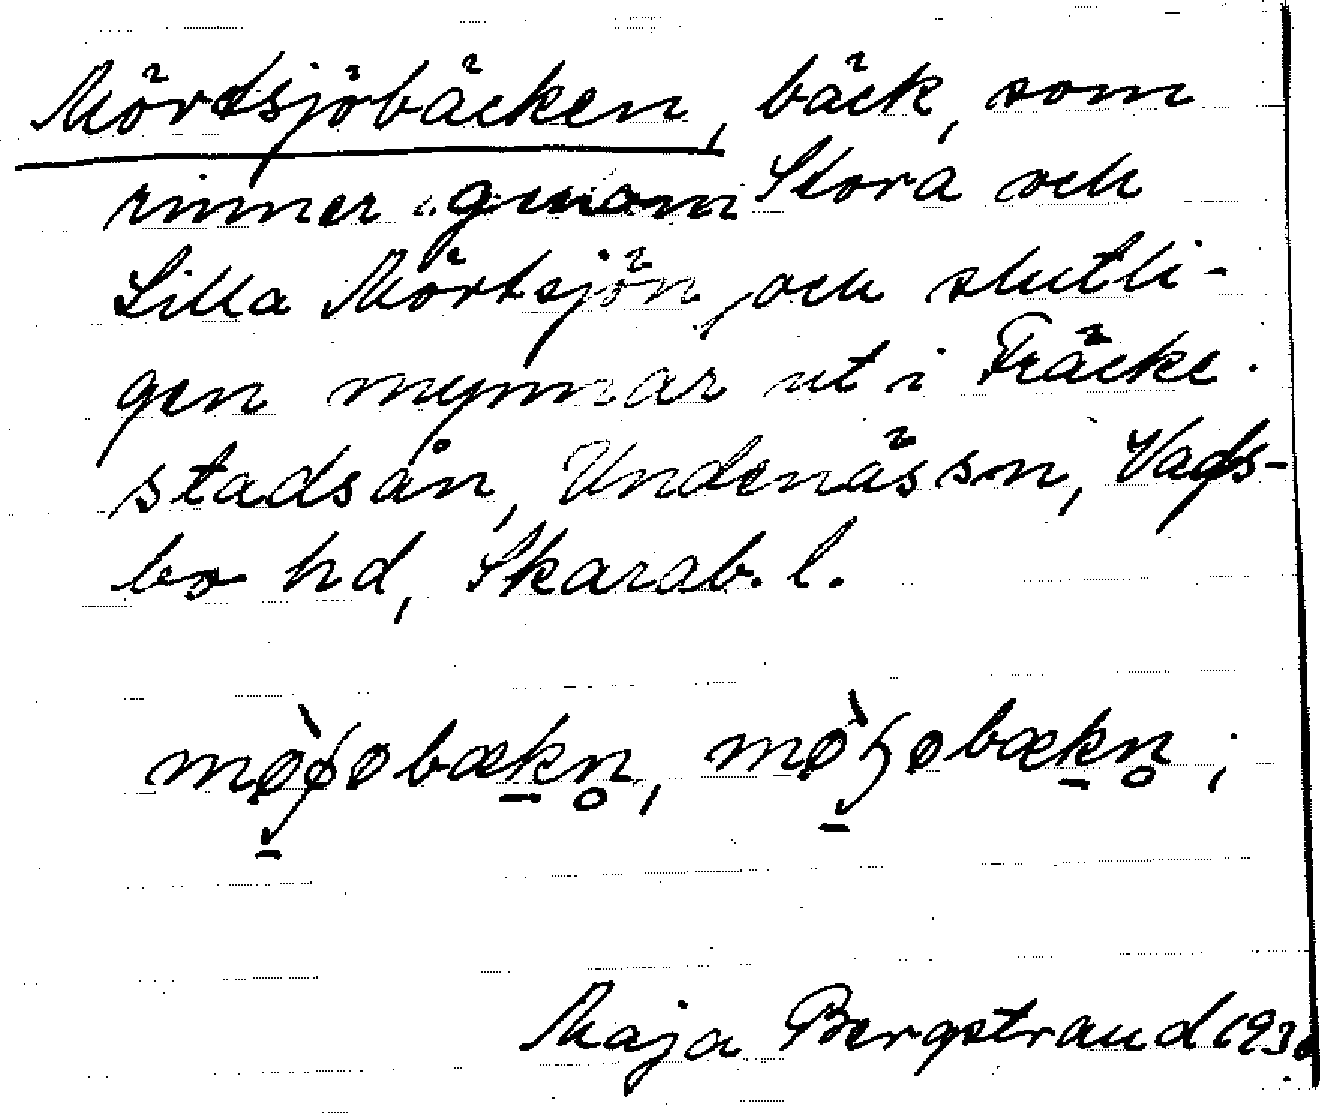 Mörtsjöbäcken, bäck, som
rinner genom Stora och
Lilla Mörtsjön, och slutli-
gen mynnar ut i Fräcke-
stadsån, Undenäs sn, Vads-
bo hd, Skarab. l.
Maja Bergstrand